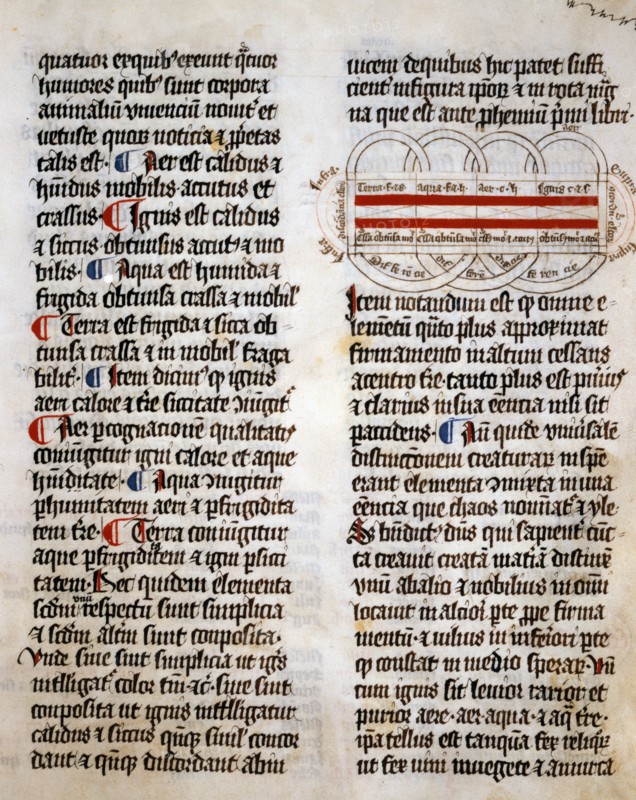 quatuor ex quib' exeunt q̄tuor
humores quib' sunt corpora
animaliū vivenciū novit' et
vetuste quor̄ noticia ⁊ p̄petas
talis est · ¶ Aer est calidus ⁊
humidus mobilis · accutus et
crassus · ¶ Ignis est calidus
⁊ siccus · obtunsus accut' ⁊ mo
bilis · ¶ Aqua est humida ⁊
frigida obtunsa crassa ⁊ mobil'
¶ Terra est frigida ⁊ sicca ob
tunsa crassa ⁊ inmobil' fraga
bilit' · ¶ Item dicit' q̨ ignis
aeri calore ⁊ t̄re siccitate ɔiūgit'
¶ Aer p cognacionē qualitatis
coniūgitur igni calore et aque
hūiditate · ¶ Aqua ɔiugitur
p humitatem aeri ⁊ p frigidita
tem t̄re · ¶ Terra coniūgitur
aque p frigiditatem ⁊ igni p sicci
tatem · Hec quidem elementa
scdm̄ vnū respectū sunt simplicia
⁊ scdm̄ aliū sunt conposita ·
Vnde sive sint simplicia ut ig's
intelligat' color tm̄ · ⁊c · sive sint
conposita ut ignis intelligatur
calidus ⁊ siccus q̄nq̨ simil' concor
dant ⁊ q̄nq̨ discordant abin
vicem de quibus hic patet suffi
cient' in figura ipor̄ ⁊ in rota
na que est ante p̄hemiū p̄mi libri ·
aer
Terra · f · ⁊ s Aqua · f · ⁊ h Aer · c · h Ignis · c · ⁊ s
Item notandum est q̨ omne e-
lementū q̄nto plus approximat
firmamento in altum cessans
a centro t̄re · tanto plus est puri'
⁊ clarius in sua eēncia nisi sit
p accidens · ¶ An̄ quidē vniūsalē
distinctionem creaturar̄ in spē
erant elementa ɔmixta in una
eēncia que chaos nominat' ⁊ yle ·
S; bn̄dict' dn̄s qui sapient' cūc
ta creavit creatā matiā distinx'
vnū ab alio ⁊ nobilius in om̄i
locavit in alciori pte ppe firma
mentū · ⁊ vilius in inferiori pte
q̨ constat in medio sperar̄ · Vn̄
cum ignis sit levior rarior et
purior aere · aer aqua · ⁊ aq̄ t̄re ·
ip̄a tellus est tanquā fex reliq̄r̄
ut fex vini in vegete ⁊ amurca